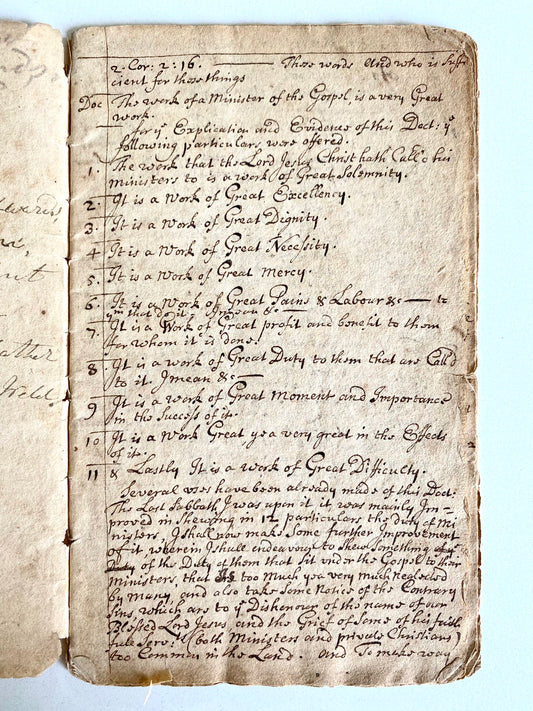 2. Cor: 2: 16. — These words And who is suffi
cient for these things
Doc The work of a Minister of the Gospel is a very Great
work.
for yᵉ Explication and Evidence of this Doct: yᵉ
following particulars were offered.
1. The work that the Lord Jesus Christ hath Call'd his
ministers to is a work of Great Solemnity.
2. It is a Work of Great Excellency.
3. It is a Work of Great Dignity.
4 It is a Work of Great Necessity.
5. It is a Work of Great Mercy.
6. It is a Work of Great Pains & Labour &c — to
yᵐ that do it. I mean &c —
7. It is a Work of Great profit and benefit to them
for whom it is done.
8 It is a work of Great Duty to them that are Call'd
to it. I mean &c —
9 It is a work of Great Moment and Importance
in the Success of it.
10 It is a Work Great, yea very great in the Effects
of it.
11 & Lastly It is a work of Great Difficulty.
Several uses have been already made of this Doct:
The Last Sabbath I was upon it it was mainly Im-
proved in Shewing in 12 particulars the Duty of Mi
nisters, I shall now make Some further Improvement
of it, wherein I shall endeavour to Shew Something
of the Duty of them that Sit under the Gospel to their
Ministers, that is too much yea very much neglected
by many, and also take Some Notice of the Contrary
Sins, which are to yᵉ Dishonour of the name of our
Blessed Lord Jesus and the Grief of Some of his faith
full Serv: (both Ministers and private Christians)
too Common in the Land. And To make way